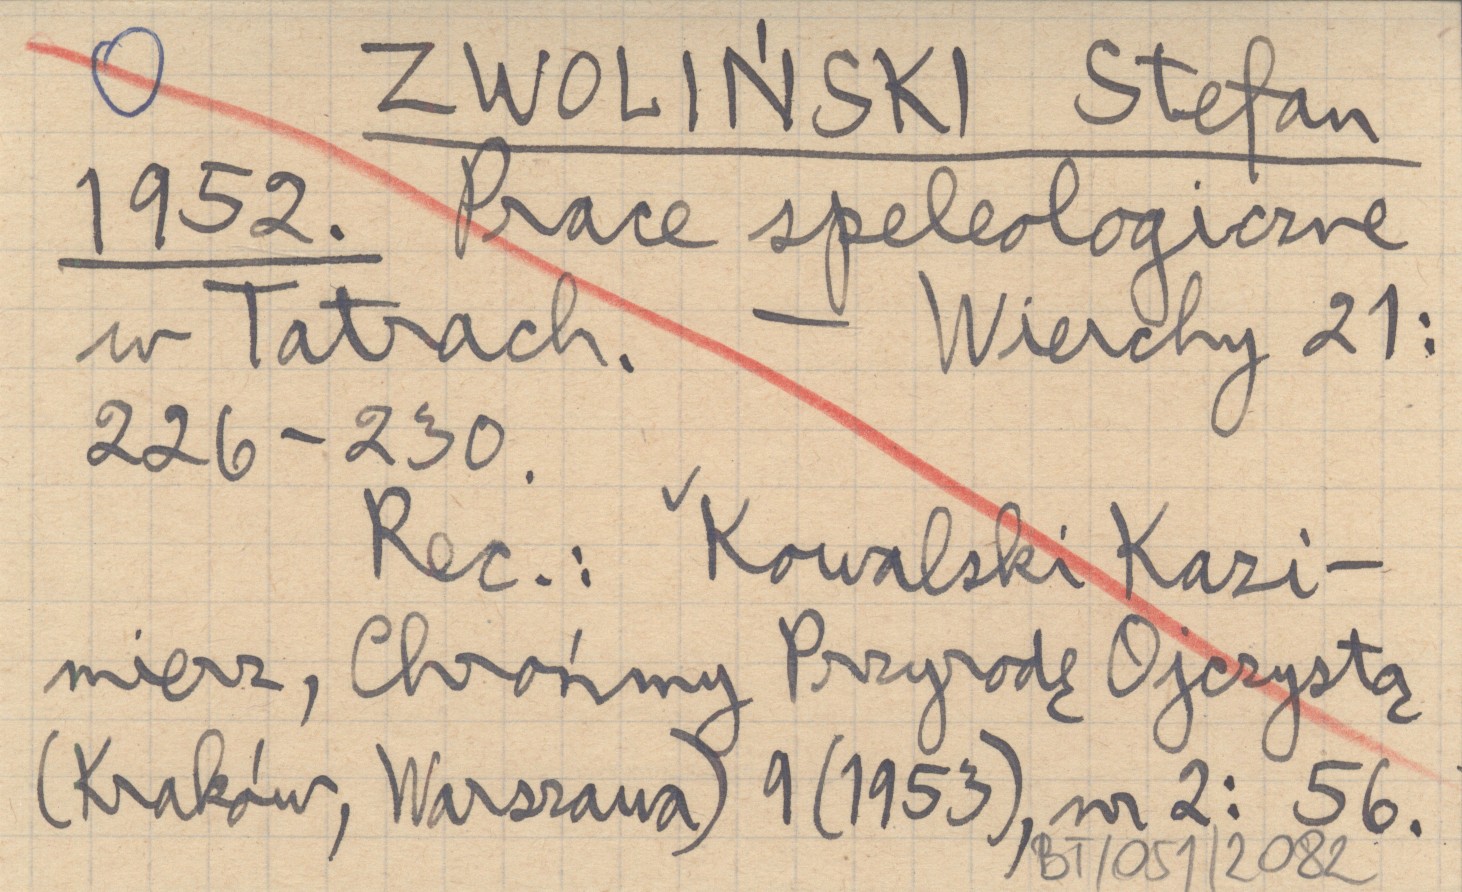 ZWOLIŃSKI Stefan
1952. Prace speleologiczne
w Tatrach. — Wierchy 21:
226-230.
Rec.: Kowalski Kazi-
mierz, Chrońmy Przyrodę Ojczystą
(Kraków, Warszawa) 9 (1953), nr 2: 56.
BT/051/2082